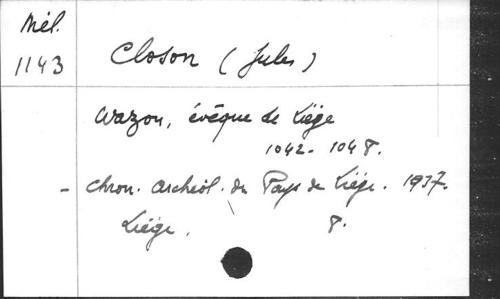 Mél.
1143
Closon (Jules)
Wazon, évêque de Liège
1042-1048.
- Chron. archéol. du Pays de Liège. 1937.
Liège. 8.